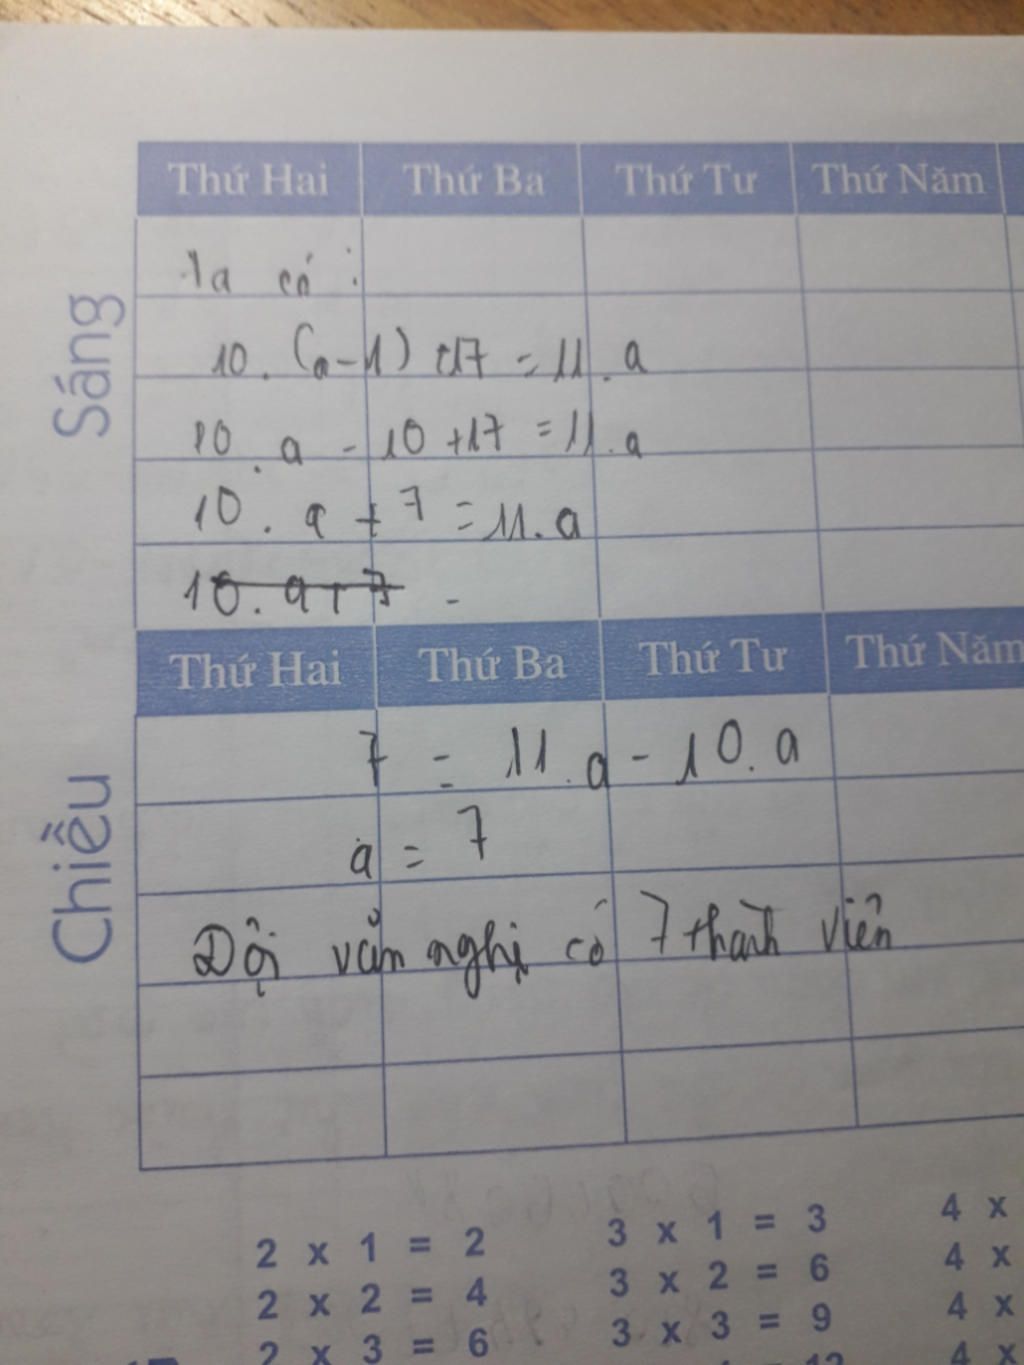 Thứ Hai Thứ Ba Thứ Tư Thứ Năm
Sáng
Ta có :
10 . (a - 1) + 17 = 11 . a
10 . a - 10 + 17 = 11 . a
10 . a + 7 = 11 . a
10 . a + 7 -
Thứ Hai Thứ Ba Thứ Tư Thứ Năm
Chiều
7 = 11 . a - 10 . a
a = 7
Đội văn nghị có 7 thành viên
2 x 1 = 2 3 x 1 = 3 4 x
2 x 2 = 4 3 x 2 = 6 4 x
2 x 3 = 6 3 x 3 = 9 4 x
4 x